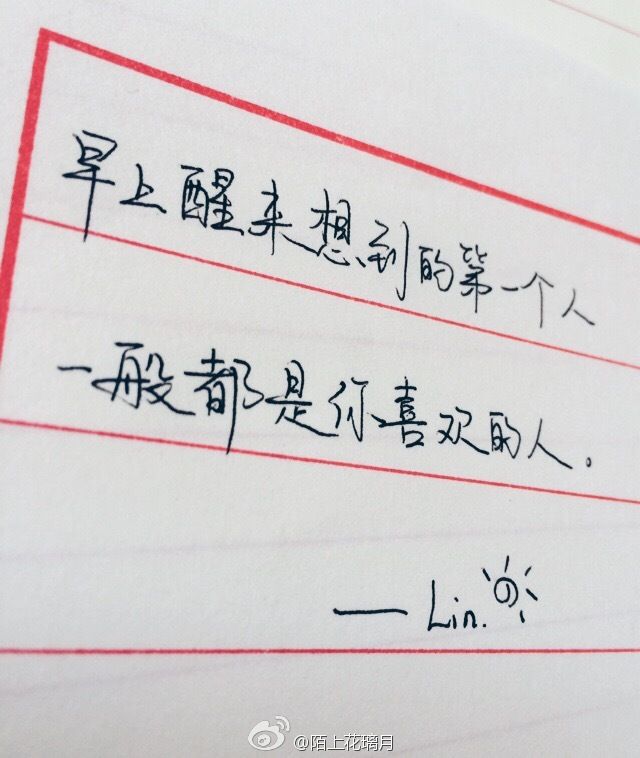 早上醒来想到的第一个人
一般都是你喜欢的人。
—— Lin.
@陌上花璃月